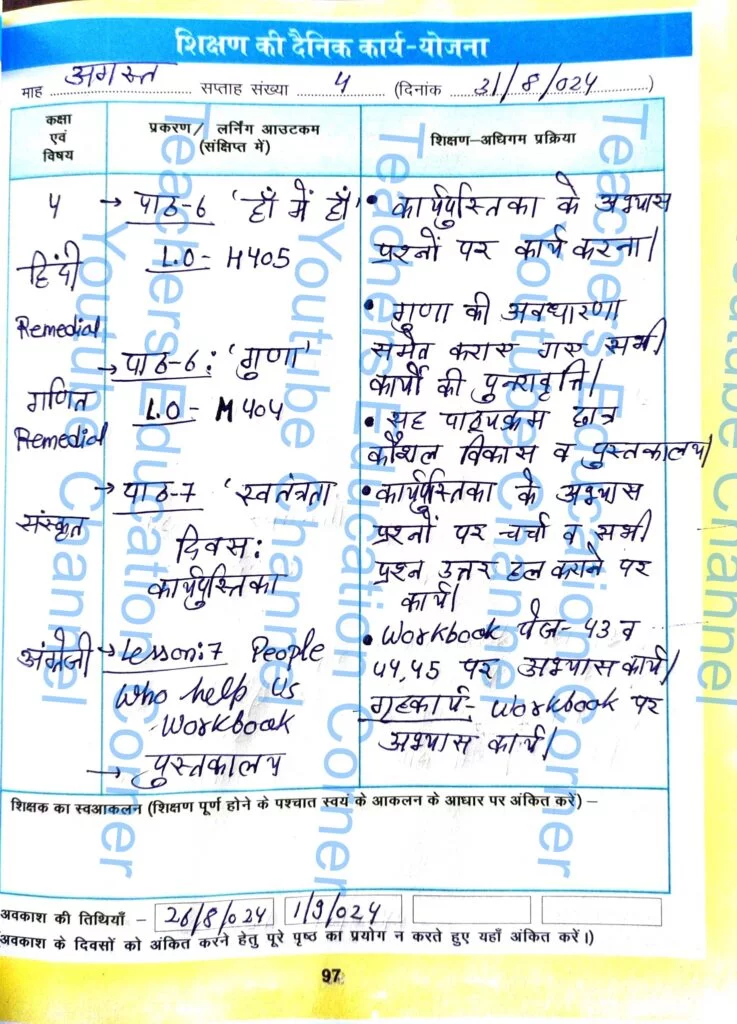 शिक्षण की दैनिक कार्य-योजना
माह अगस्त सप्ताह संख्या 4 (दिनांक 31/8/024)
कक्षा
एवं
विषय
प्रकरण/ लर्निंग आउटकम
(संक्षिप्त में)
शिक्षण-अधिगम प्रक्रिया
4
हिंदी
Remedial
→ पाठ-6 'हाँ में हाँ'
L.O- H405
• कार्यपुस्तिका के अभ्यास
प्रश्नों पर कार्य करना।
गणित
Remedial
→ पाठ-6: 'गुणा'
L.O - M404
• गुणा की अवधारणा
समेत कराए गए सभी
कार्यों की पुनरावृत्ति।
• सह पाठ्यक्रम छात्र
कौशल विकास व पुस्तकालय।
संस्कृत
→ पाठ-7 'स्वतंत्रता
दिवस:
कार्यपुस्तिका
• कार्यपुस्तिका के अभ्यास
प्रश्नों पर चर्चा व सभी
प्रश्न उत्तर हल कराने पर
कार्य।
अंग्रेजी
→ Lesson:7 People
Who help Us
Workbook
→ पुस्तकालय
• Workbook पेज-43 व
44,45 पर अभ्यास कार्य।
गृहकार्य- Workbook पर
अभ्यास कार्य।
शिक्षक का स्वआकलन (शिक्षण पूर्ण होने के पश्चात स्वयं के आकलन के आधार पर अंकित करें) –
अवकाश की तिथियाँ – 26/8/024 1/9/024
(अवकाश के दिवसों को अंकित करने हेतु पूरे पृष्ठ का प्रयोग न करते हुए यहाँ अंकित करें।)
97
Teachers Education Corner
Youtube Channel
Teachers Education Corner
Youtube Channel
Teachers Education Corner
Youtube Channel